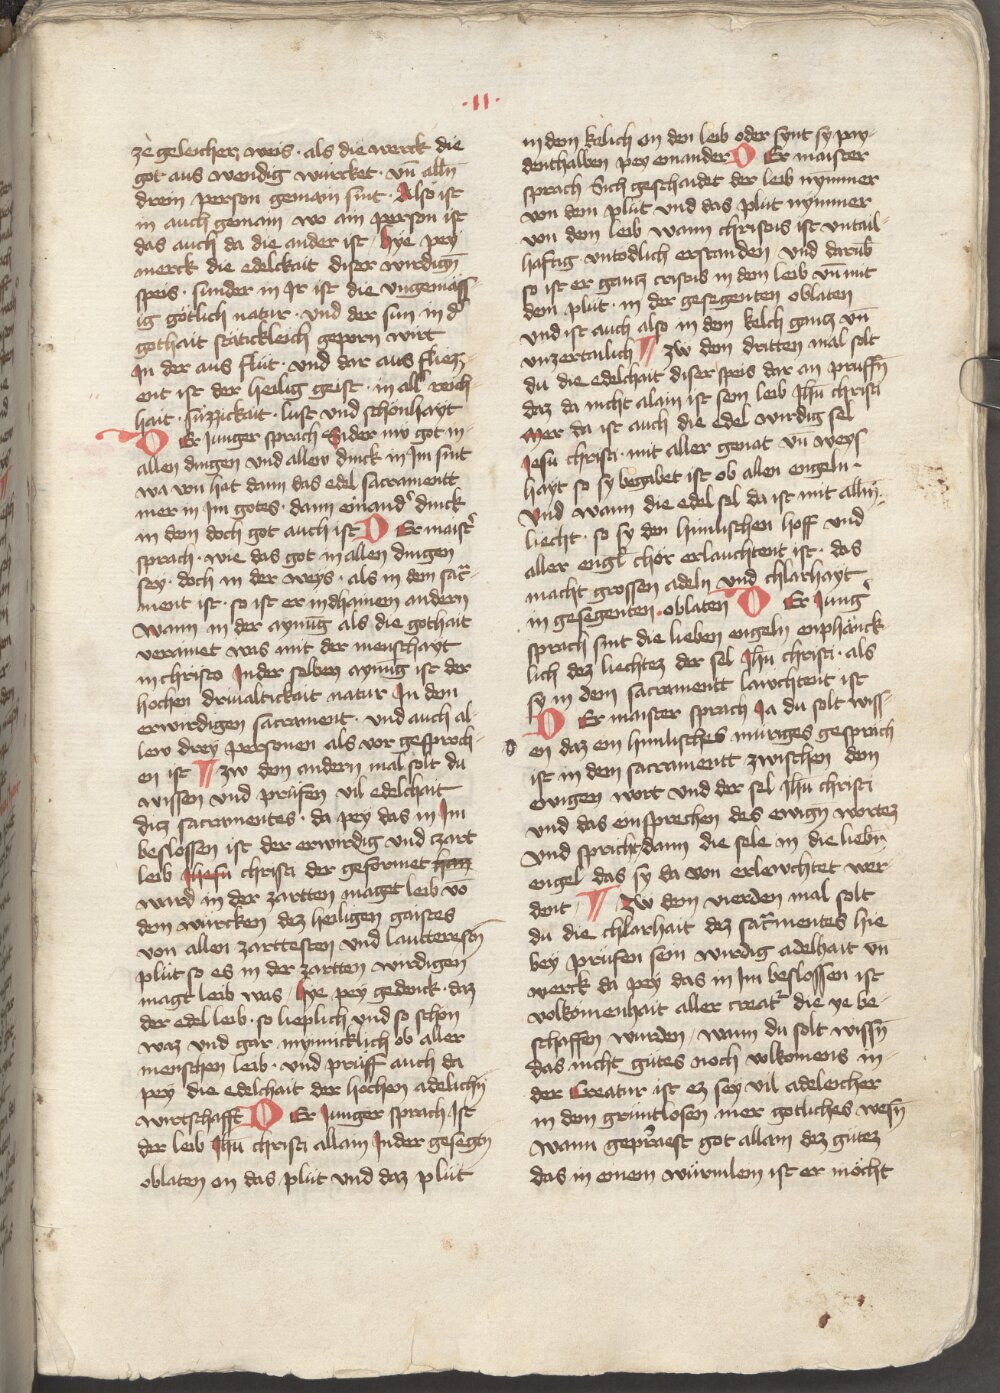 ·11·
ze geleicher weis · als die werck die
got aus wendig würcket · vn̄ alln̄
drein person gemain sint · Also ist
in auch gemain wo ain person ist
das auch da die ander ist / hye pey
merck die edelckait diser wirdign̄
speis · sunder in Ir ist die vngemäss
ig götlich natur · vnd der sun in dˢ
gothait stätickleich geporn wirt
In der aus flüt · vnd dar aus fliez-
ent ist der heilig geist · in allˢ reich-
hait · süzzickait · lust vnd schönhayt
DEr Iunger sprach Sider nw got in-
allen dingen vnd allew dinck in Im sint
wa von hat dann das edel sacramentt
mer in Im gotes · dann ein andˢ dinck
in dem doch got auch ist DEr maistˢ
sprach · wie das got in allen dingen
sey · doch in der weys · als in dem sac̄-
ment ist · so ist er indhainem andern
Wann in der aynūg als die gothait
veraniet was mit der menschayt
in christo In der selben aynūg ist der
hochen driualtickait natur In dem
erwirdigen sacrament · vnd auch al-
lew drey personen als vor gesproch-
en ist ¶ zw dem andern mal solt du
wissen vnd prüfen vil edelchait
diz sacramentes · da pey das in Im
beslossen ist der erwirdig vnd czart
leib Ihesu christi der geformet
ward in der zartten maget leib vō
dem würcken dez heiligen gaistes
von allen zarttesten vnd lautteresten
plüt so es in der zartten wirdigen
magt leib was / hye pey gedenck · daz
der edel leib · so lieplich vnd so schön
waz vnd gar mynnicklich ob aller
menschen leib · vnd prüff auch da
pey die edelchait der hochen adelichn̄
wirtschafft DEr Iunger sprach Ist
der leib Ihū christi allain In der gesegn̄
oblaten on das plüt vnd daz plüt
in dem kelich on den leib oder synt sy pay-
denthalben pey einander DEr maister
sprach Sich geschaidet der leib nymmer
von dem plüt vnd das plüt nymmer
von dem leib wann christus ist vntail-
haftig vntödlich erstanden vnd darüb
so ist er gancz cristus in dem leib vn̄ mit
dem plüt · in der gesegenten oblaten
vnd ist auch also in dem kelch gancz vn̄
vnzertailich ¶ zw dem dritten mal solt
du die edelchait diser speis dar an prüffn̄
daz da nicht alain ist sein leib Ihū christi
Mer da ist auch die edel wirdig sel
Iesu christi · mit aller genat vn̄ weys
hayt so sy begabet ist ob allen engeln ·
Vnd wann die edel sel da ist mit alln̄
liecht · so sy den himlischen hoff vnd
aller engl chör erlauchtent ist · das
macht grossen adeln vnd chlarhayt
in gesegenten · oblaten DEr Iungˢ
sprach sint die lieben engeln enphänck
lich dez liechtez der sel Ihū christi · als
sy in dem sacramentt lawchtent ist
DEr maister sprach Ia du solt wiss-
en daz ein himlisches inniges gespräch
ist in dem sacramentt zwischen dem
ewigen wort vnd der sel Ihū christi
vnd das einsprechen des ewign̄ wortez
vnd sprichtz dann die sele in die liebn̄
engel das sy da von erlewchtet wer
dent ¶ zw dem vierden mal solt
du die chlarhait dez sac̄mentes hie
bey prüfen sein wirdig adelhait vn̄
merck da pey das in Im beslossen ist
volkomenhait aller creatˢ die ye be-
schaffen wurden / wann du solt wissn̄
das nicht gütes noch volkomens in-
der Creatur ist ez sey vil adeleicher
in dem gruntlosen mer götliches wesn̄
wann geprˢaest got allain dez gütez
das in einem würmlein ist er möcht